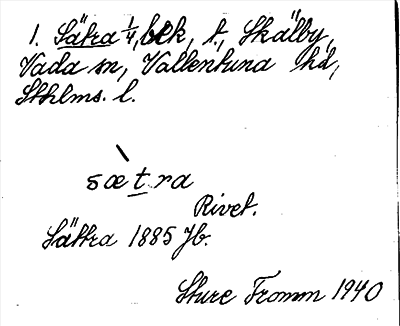 1. Sätra 1/4, bek, t., Skälby,
Vada sn, Vallentuna hd,
Sthlms. l.
sætra
Rivet.
Sättra 1885 Jb.
Sture Fromm 1940